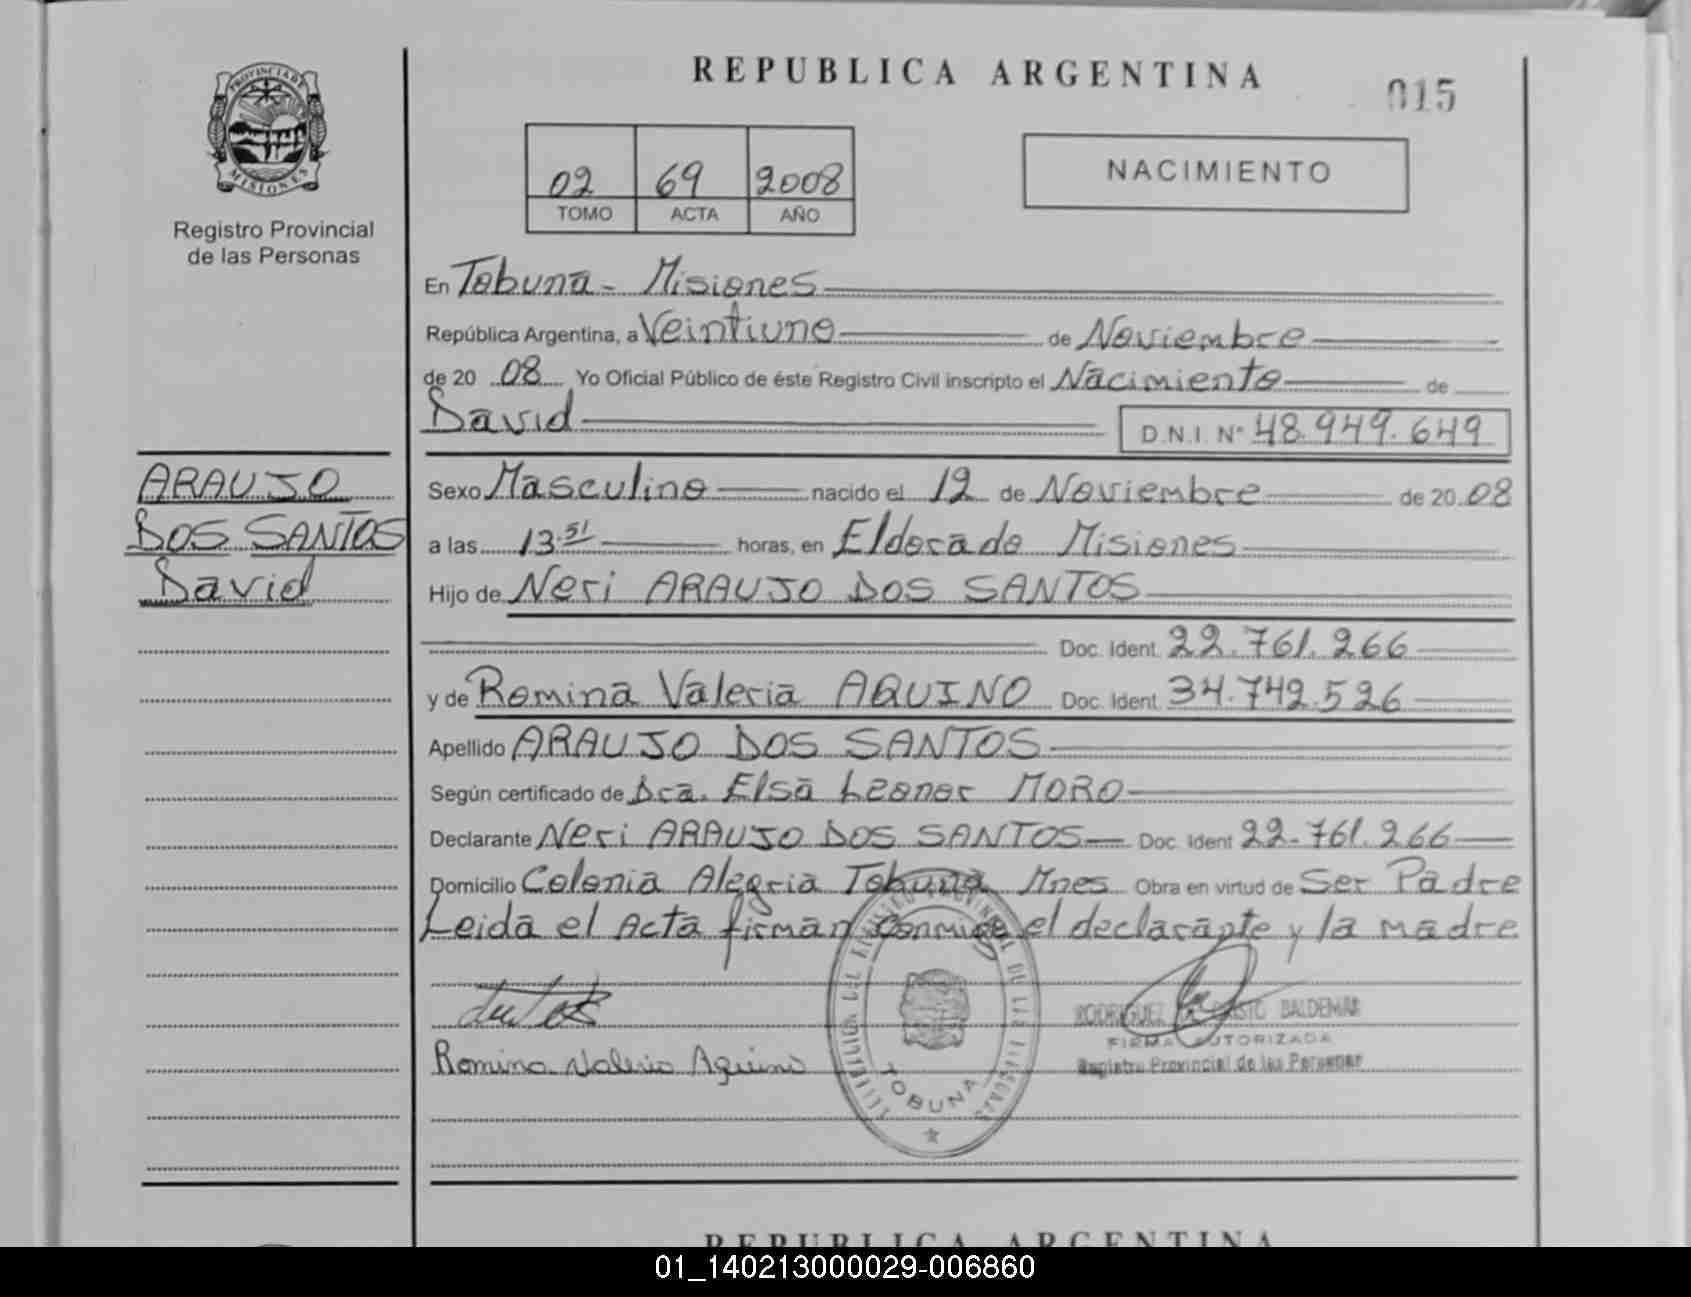 REPUBLICA ARGENTINA
015
PROVINCIA DE
MISIONES
Registro Provincial
de las Personas
02 69 2008
TOMO ACTA AÑO
NACIMIENTO
En Tobuna - Misiones
República Argentina, a Veintiuno de Noviembre
de 20 08 Yo Oficial Público de éste Registro Civil inscripto el Nacimiento de
David D.N.I. Nº 48.949.649
ARAUJO
DOS SANTOS
David
Sexo Masculino nacido el 12 de Noviembre de 20 08
a las 13.51 horas, en Eldorado Misiones
Hijo de Neri ARAUJO DOS SANTOS
Doc. Ident. 22.761.266
y de Romina Valeria AQUINO Doc. Ident. 34.742.526
Apellido ARAUJO DOS SANTOS
Según certificado de Dra. Elsa Leonor MORO
Declarante Neri ARAUJO DOS SANTOS Doc. Ident 22.761.266
Domicilio Colonia Alegria Tobuna Mnes Obra en virtud de Ser Padre
Leida el Acta firman conmigo el declarante y la madre
RODRIGUEZ BALDEMAR
FIRMA AUTORIZADA
Registro Provincial de las Personas
Romina Valeria Aquino
TOBUNA
REPUBLICA ARGENTINA
01_140213000029-006860